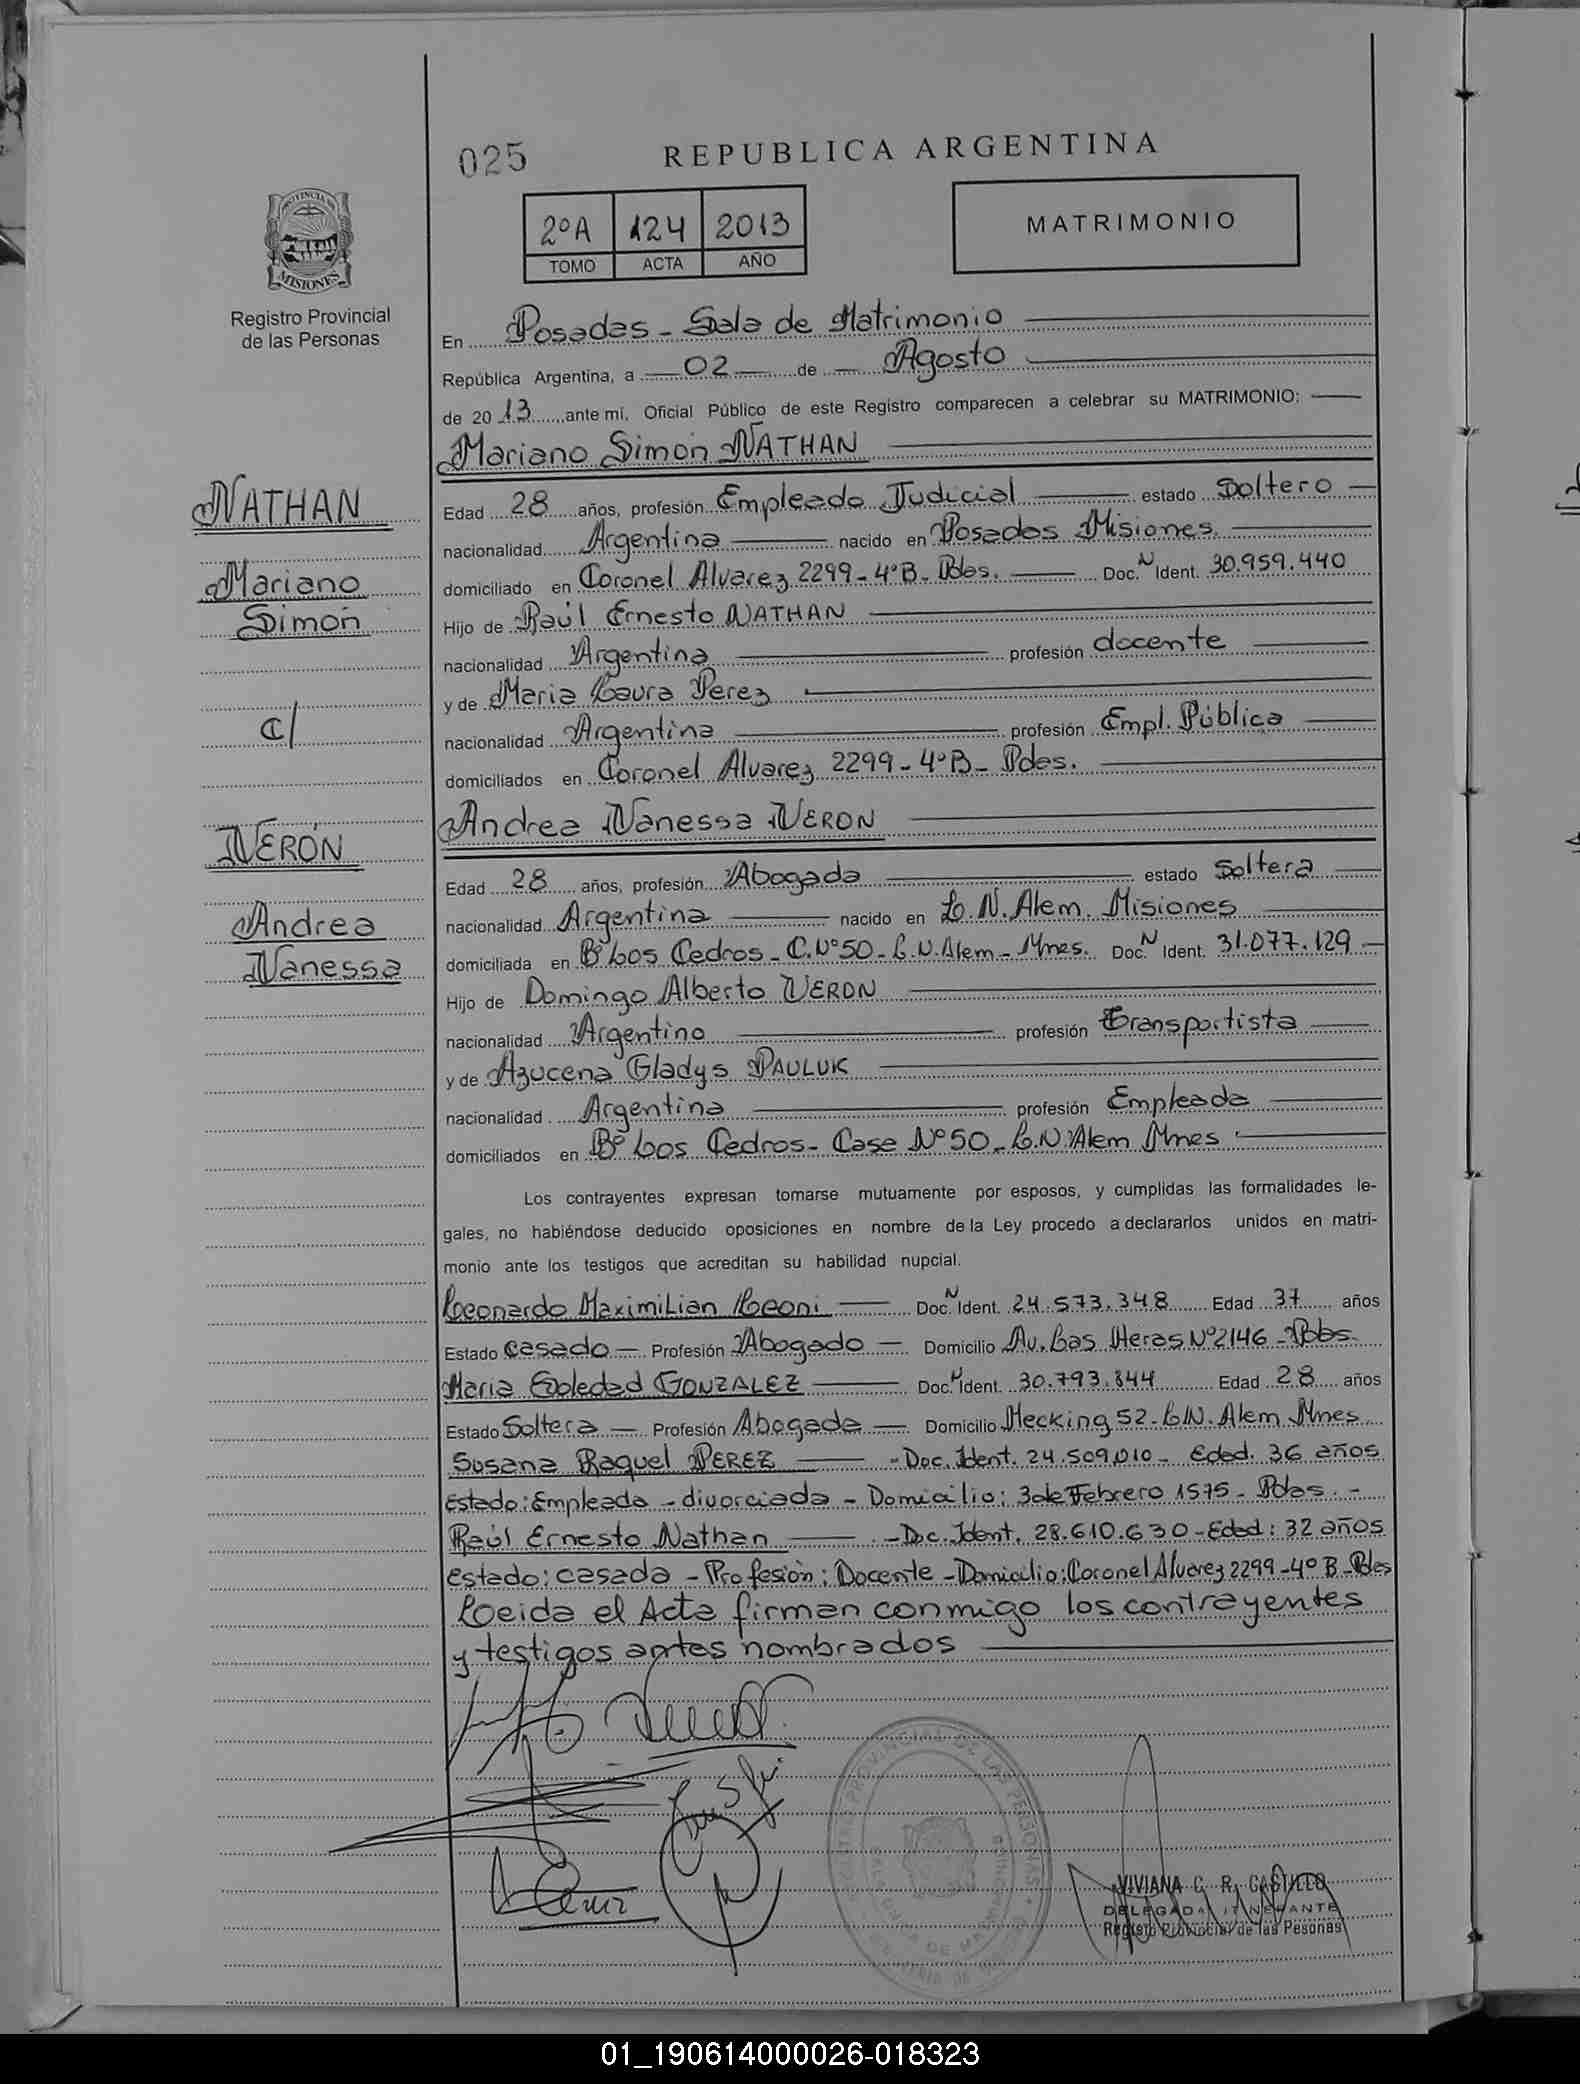 025
REPUBLICA ARGENTINA
2ºA 124 2013
TOMO ACTA AÑO
MATRIMONIO
PROVINCIA DE
MISIONES
Registro Provincial
de las Personas
En Posadas - Sala de Matrimonio
República Argentina, a 02 de Agosto
de 2013 ante mi, Oficial Público de este Registro comparecen a celebrar su MATRIMONIO:
Mariano Simón NATHAN
NATHAN
Mariano
Simón
c/
VERÓN
Andrea
Vanessa
Edad 28 años, profesión Empleado Judicial estado Soltero
nacionalidad Argentina nacido en Posadas Misiones.
domiciliado en Coronel Alvarez 2299 - 4ºB - Pdas. Doc. N Ident. 30.959.440
Hijo de Raúl Ernesto NATHAN
nacionalidad Argentina profesión docente
y de Maria Laura Perez
nacionalidad Argentina profesión Empl. Pública
domiciliados en Coronel Alvarez 2299 - 4ºB - Pdas.
Andrea Vanessa VERON
Edad 28 años, profesión Abogada estado Soltera
nacionalidad Argentina nacido en L.N. Alem. Misiones
domiciliada en Bº Los Cedros - C. Nº50 - L.N. Alem - Mnes. Doc. N Ident. 31.077.129
Hijo de Domingo Alberto VERON
nacionalidad Argentino profesión Transportista
y de Azucena Gladys PAULUK
nacionalidad Argentina profesión Empleada
domiciliados en Bº Los Cedros - Casa Nº50 - L.N. Alem Mnes
Los contrayentes expresan tomarse mutuamente por esposos, y cumplidas las formalidades le-
gales, no habiéndose deducido oposiciones en nombre de la Ley procedo a declararlos unidos en matri-
monio ante los testigos que acreditan su habilidad nupcial.
Leonardo Maximilian Leoni Doc. N Ident. 24.573.348 Edad 37 años
Estado casado Profesión Abogado Domicilio Av. Las Heras Nº2146 - Pdas.
Maria Soledad GONZALEZ Doc. N Ident. 30.793.844 Edad 28 años
Estado Soltera Profesión Abogada Domicilio Hecking 52 - L.N. Alem Mnes
Susana Raquel PEREZ - Doc. Ident. 24.509.010 - Edad. 36 años
Estado: Empleada - divorciada - Domicilio: 3 de Febrero 1575 - Pdas. -
Raúl Ernesto Nathan - Doc. Ident. 28.610.630 - Edad: 32 años
Estado: casada - Profesión: Docente - Domicilio: Coronel Alvarez 2299 - 4º B - Pdas
Leida el Acta firman conmigo los contrayentes
y testigos antes nombrados
VIVIANA C. R. CASTILLO
DELEGADA ITINERANTE
Registo Provincial de las Pesonas
01_190614000026-018323